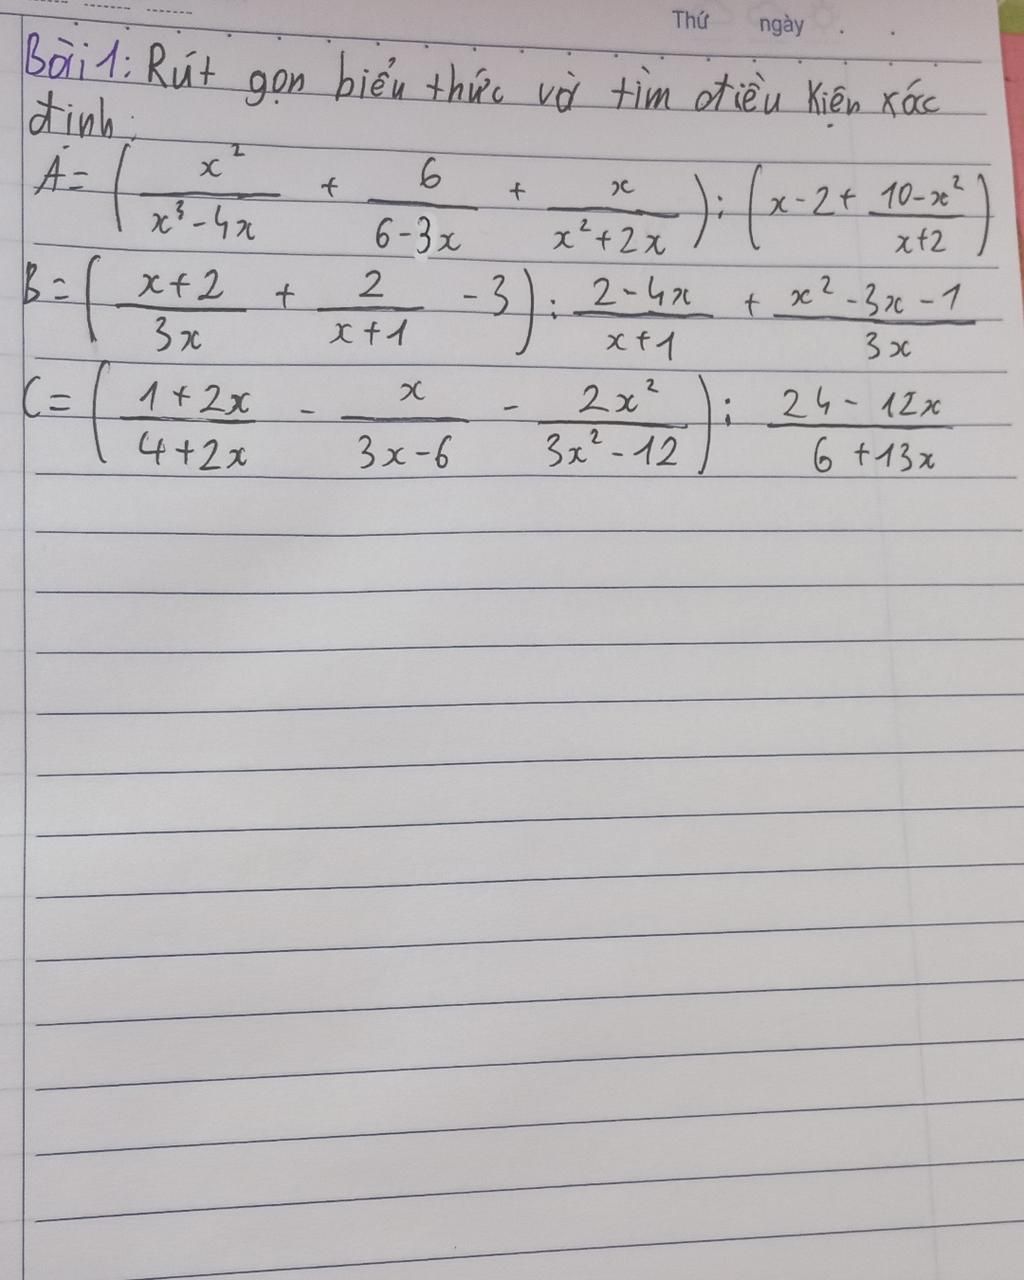 Thứ ngày . .
Bài 1: Rút gọn biểu thức và tìm điều kiện xác
định:
A = (x²/(x³-4x) + 6/(6-3x) + x/(x²+2x)) : (x-2 + (10-x²)/(x+2))
B = ((x+2)/3x + 2/(x+1) - 3) : (2-4x)/(x+1) + (x²-3x-1)/3x
C = ((1+2x)/(4+2x) - x/(3x-6) - 2x²/(3x²-12)) : (24-12x)/(6+13x)